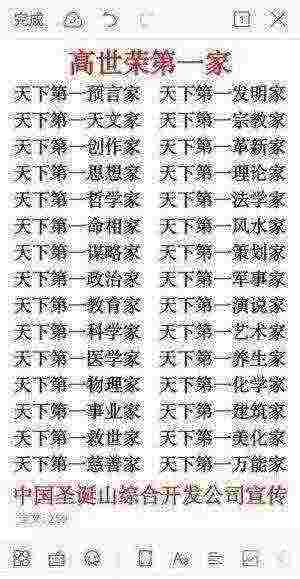 完成 1
高世荣第一家
天下第一预言家 天下第一发明家
天下第一天文家 天下第一宗教家
天下第一创作家 天下第一革新家
天下第一思想家 天下第一理论家
天下第一哲学家 天下第一法学家
天下第一命相家 天下第一风水家
天下第一谋略家 天下第一策划家
天下第一政治家 天下第一军事家
天下第一教育家 天下第一演说家
天下第一科学家 天下第一艺术家
天下第一医学家 天下第一养生家
天下第一物理家 天下第一化学家
天下第一事业家 天下第一建筑家
天下第一救世家 天下第一美化家
天下第一慈善家 天下第一万能家
中国圣诞山综合开发公司宣传